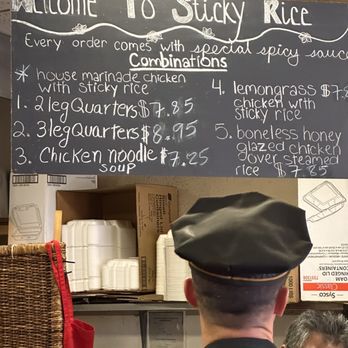 Welcome To Sticky Rice
Every order comes with special spicy sauce
Combinations
* house marinade chicken
with sticky rice
1. 2 leg Quarters $7.85
2. 3 leg Quarters $8.95
3. Chicken noodle $7.25
soup
4. lemongrass
chicken with
sticky rice
5. boneless honey
glazed chicken
over steamed
rice $7.85
FOAM
HINGED LID
CONTAINERS
Sysco
Classic